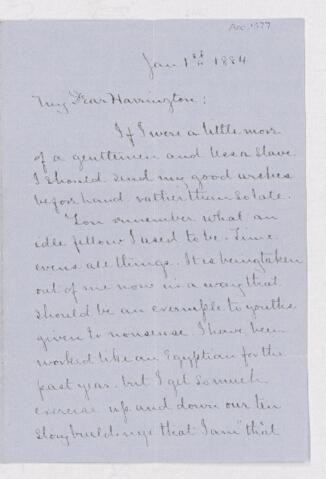 Acc. 1377
Jan 1st 1884
My Dear Harrington:
If I were a little more
of a gentlemen and less a slave
I should send my good wishes
beforhand rather than so late.
You remember what an
idle fellow I used to be. Time
evens all things. It is being taken
out of me now in a way that
should be an exemple to youths
given to nonsense. I have been
worked like an Egyptian for the
past year. but I get so much
exercise up and down our ten
story buildings that I am "that